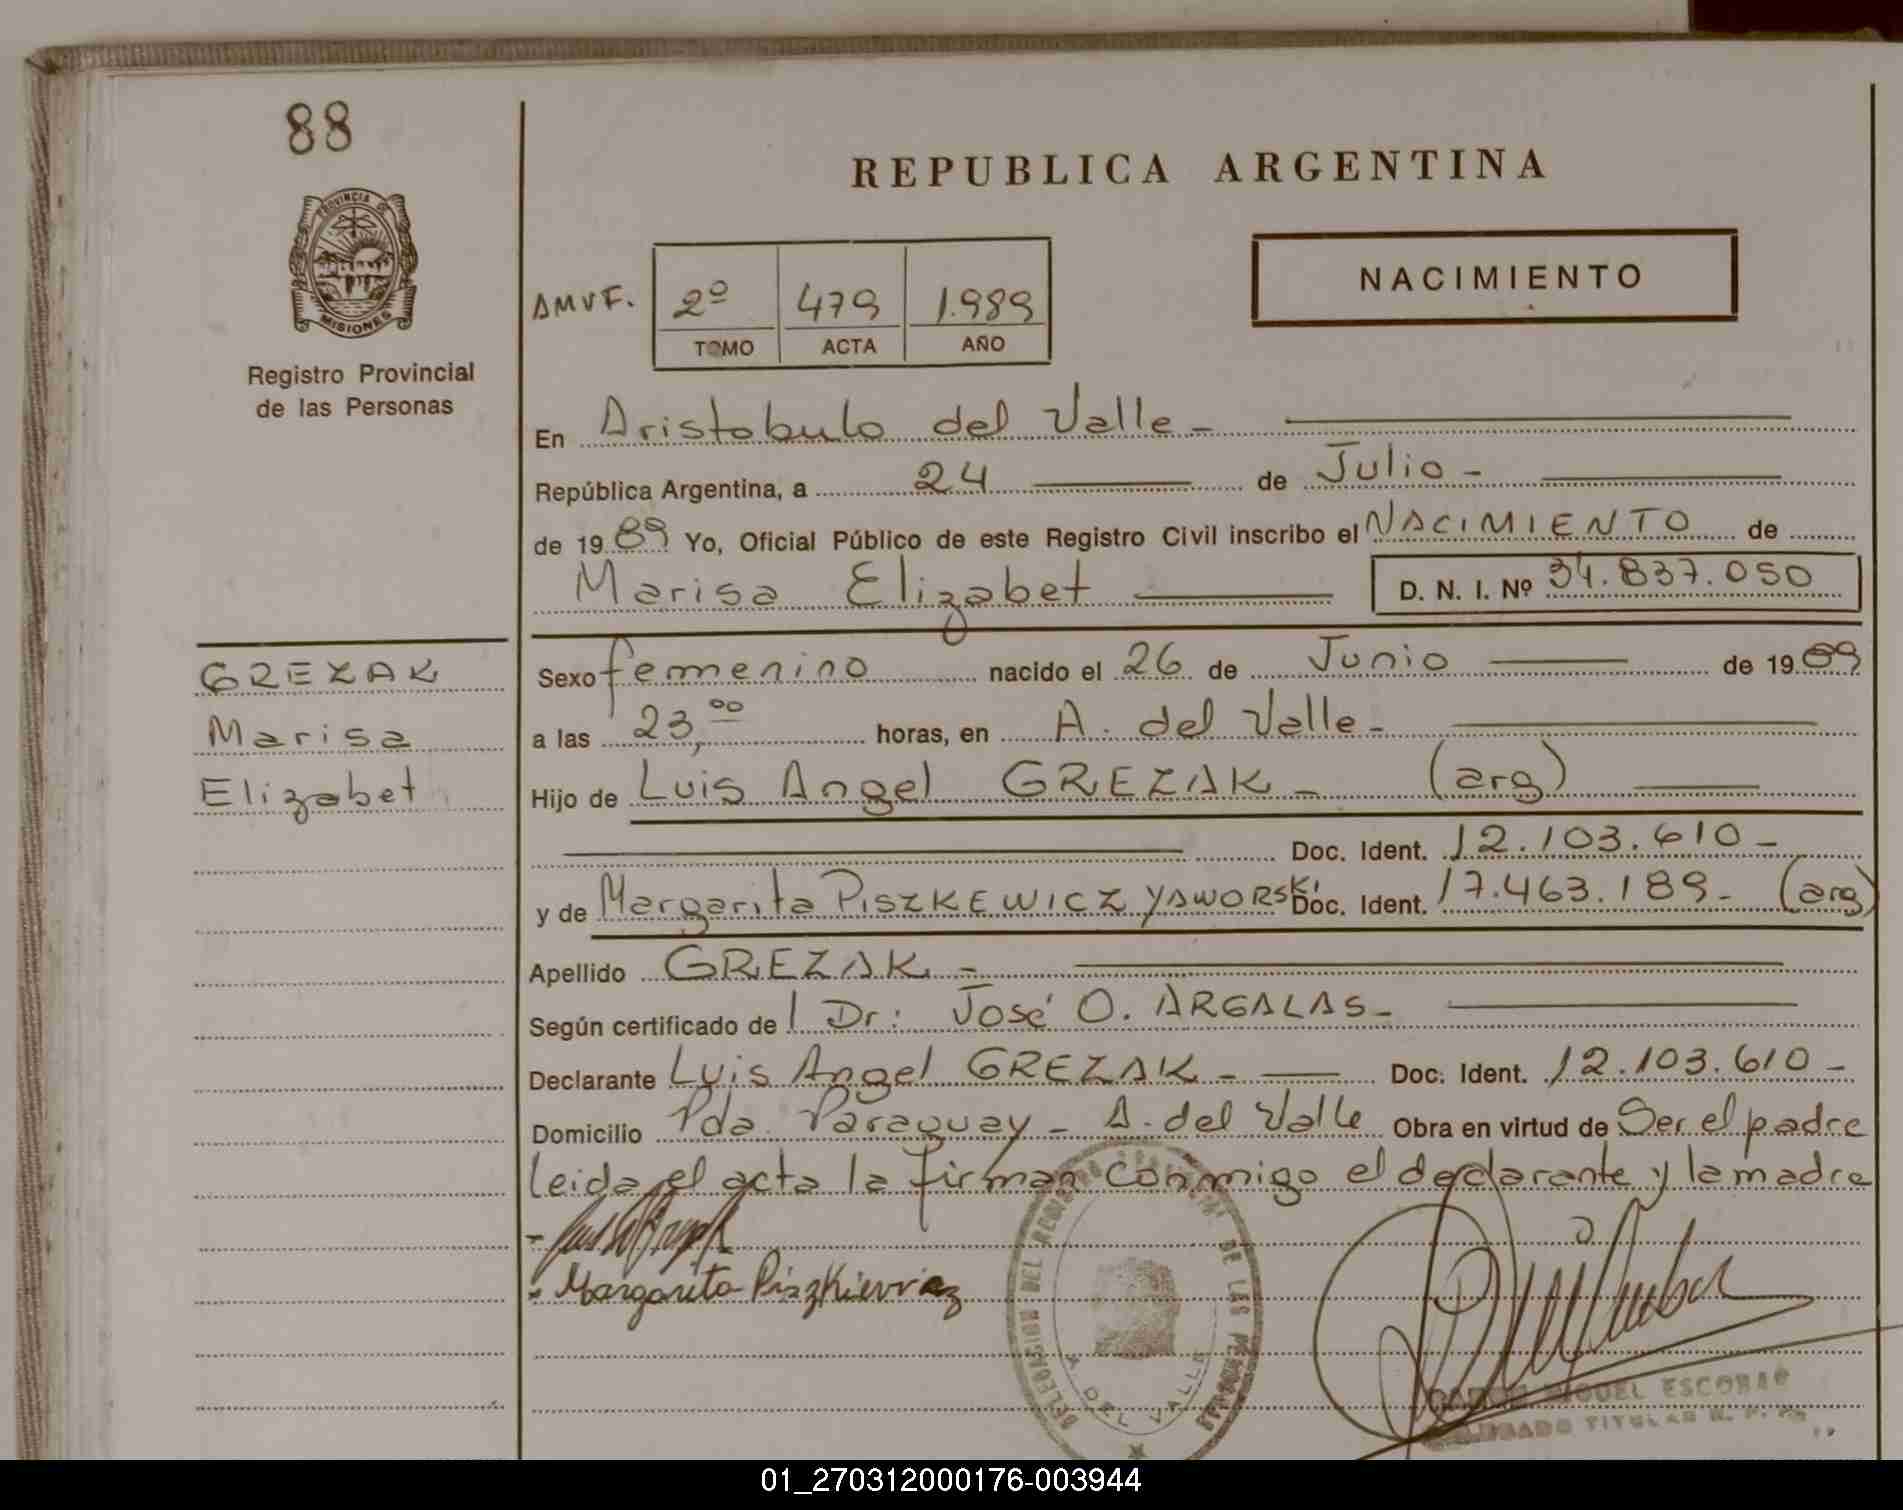 88
PROVINCIA DE
MISIONES
Registro Provincial
de las Personas
REPUBLICA ARGENTINA
NACIMIENTO
AMVF. 2º 479 1.989
TOMO ACTA AÑO
En Aristobulo del Valle -
República Argentina, a 24 de Julio -
de 1989 Yo, Oficial Público de este Registro Civil inscribo el NACIMIENTO de
Marisa Elizabet D. N. I. Nº 34.837.050
GREZAK
Marisa
Elizabet
Sexo femenino nacido el 26 de Junio de 1989
a las 23,00 horas, en A. del Valle -
Hijo de Luis Angel GREZAK - (arg)
Doc. Ident. 12.103.610 -
y de Margarita PISZKEWICZ YAWORSKI Doc. Ident. 17.463.189 - (arg)
Apellido GREZAK -
Según certificado de l Dr: José O. ARGALAS -
Declarante Luis Angel GREZAK - Doc. Ident. 12.103.610 -
Domicilio Pda. Paraguay - A. del Valle Obra en virtud de Ser el padre
leida el acta la firman conmigo el declarante y la madre
- Margarita Piszkiewicz
DELEGACION DEL REGISTRO PROVINCIAL DE LAS PERSONAS
A. DEL VALLE
RAMON MIGUEL ESCOBAR
DELEGADO TITULAR R. P. P.
01_270312000176-003944